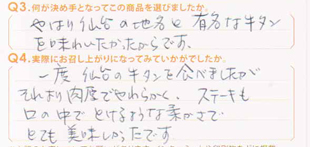 Q3.何が決め手となってこの商品を選びましたか。
やはり仙台の地名と有名な牛タン
を味わいたかったからです。
Q4.実際にお召し上がりになってみていかがでしたか。
一度仙台の牛タンを食べましたが
それより肉厚でやわらかく、ステーキも
口の中でとけるような柔かさで
とても美味しかったです